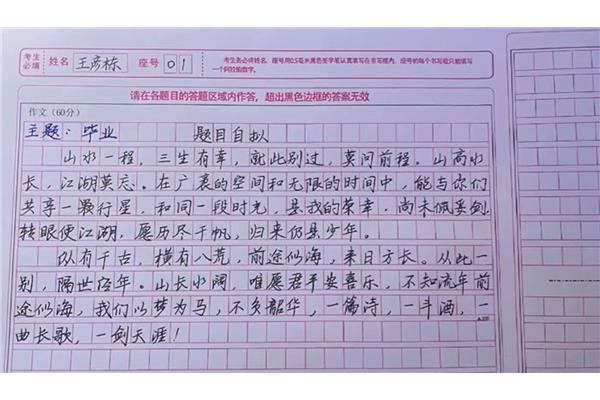 考生必填 姓名 王彦栋 座号 01 考生务必将姓名、座号用0.5毫米黑色签字笔认真填写在书写框内，座号的每个书写框只能填写一个阿拉伯数字。
请在各题目的答题区域内作答，超出黑色边框的答案无效
作文（60分）
主题：毕业 题目自拟
山水一程，三生有幸，就此别过，莫问前程。山高水
长，江湖莫忘。在广袤的空间和无限的时间中，能与你们
共享一颗行星，和同一段时光，是我的荣幸。尚未佩妥剑
转眼便江湖，愿历尽千帆，归来仍是少年。
纵有千古，横有八荒，前途似海，来日方长。从此一
别，隔世经年。山长水阔，唯愿君平安喜乐，不知流年前
途似海，我们以梦为马，不负韶华，一篇诗，一斗酒，一
曲长歌，一剑天涯！